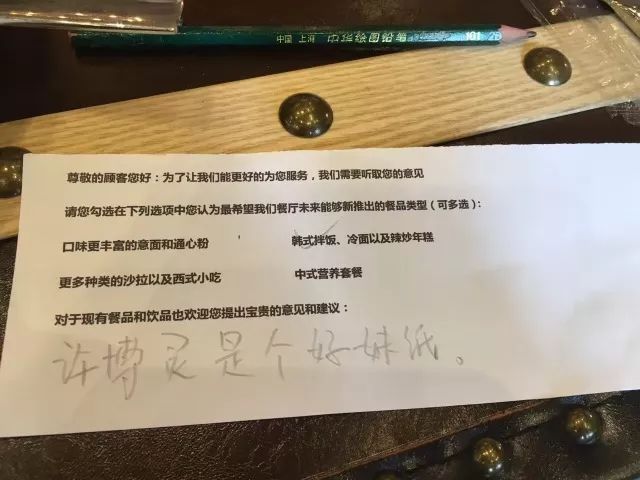 中国 上海 中华绘图铅笔 101 2B
尊敬的顾客您好：为了让我们能更好的为您服务，我们需要听取您的意见
请您勾选在下列选项中您认为最希望我们餐厅未来能够新推出的餐品类型（可多选）：
口味更丰富的意面和通心粉 韩式拌饭、冷面以及辣炒年糕
更多种类的沙拉以及西式小吃 中式营养套餐
对于现有餐品和饮品也欢迎您提出宝贵的意见和建议：
许博灵是个好妹纸。